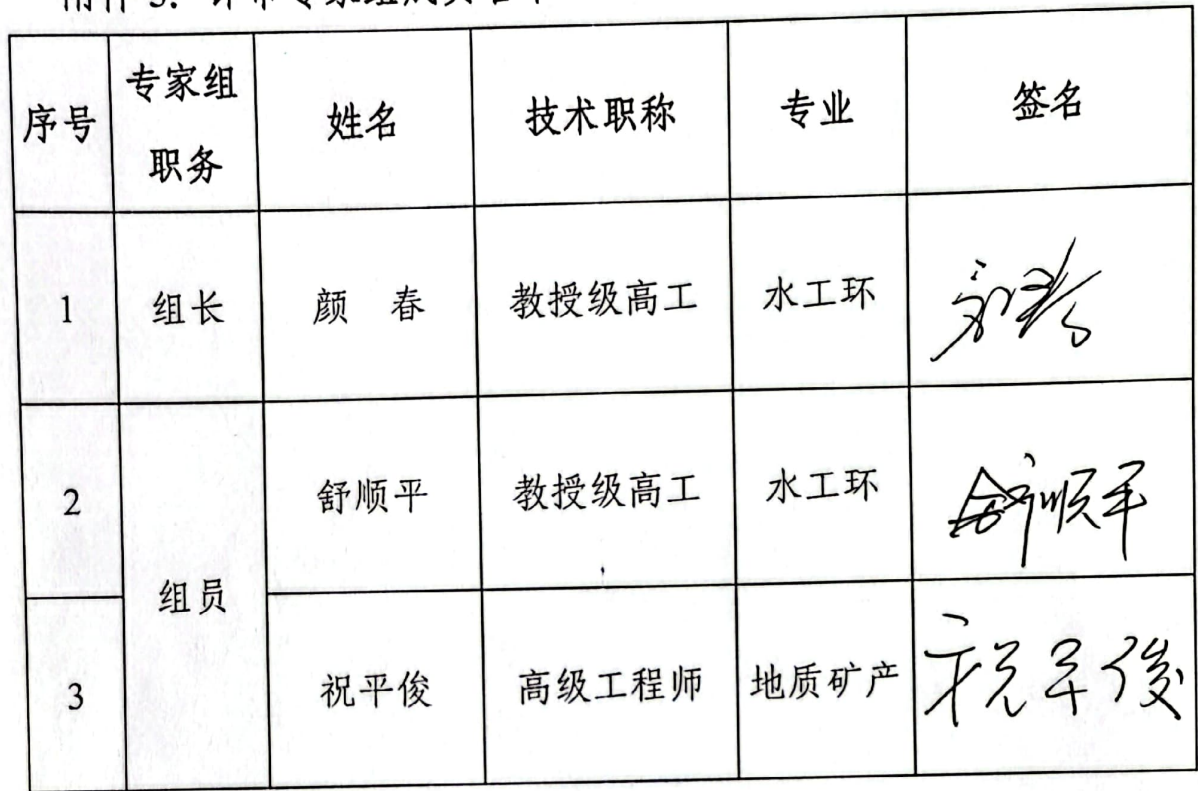 序号 专家组职务 姓名 技术职称 专业 签名
1 组长 颜 春 教授级高工 水工环
2 组员 舒顺平 教授级高工 水工环 舒顺平
3 祝平俊 高级工程师 地质矿产 祝平俊